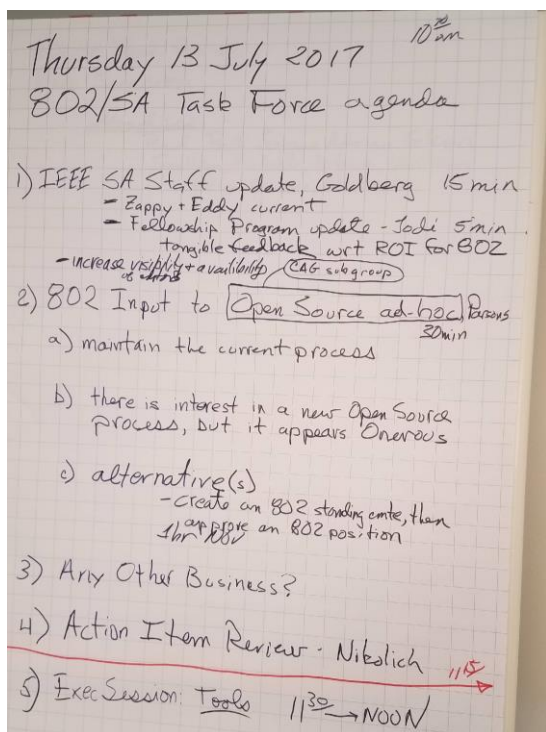 10 30 am
Thursday 13 July 2017
802/SA Task Force agenda
1) IEEE SA Staff update, Goldberg 15 min
- Zappy + Eddy current
- Fellowship Program update - Jodi 5 min
tangible feedback wrt ROI for 802
- increase visibility + availability
CAG subgroup
2) 802 Input to Open Source ad-hoc Parsons
30min
a) maintain the current process
b) there is interest in a new Open Source
process, but it appears Onerous
c) alternative(s)
- create an 802 standing cmte, then
approve an 802 position
1hr
3) Any Other Business?
4) Action Item Review - Nikolich
11 15
5) Exec Session: Tools 11 30 → NOON